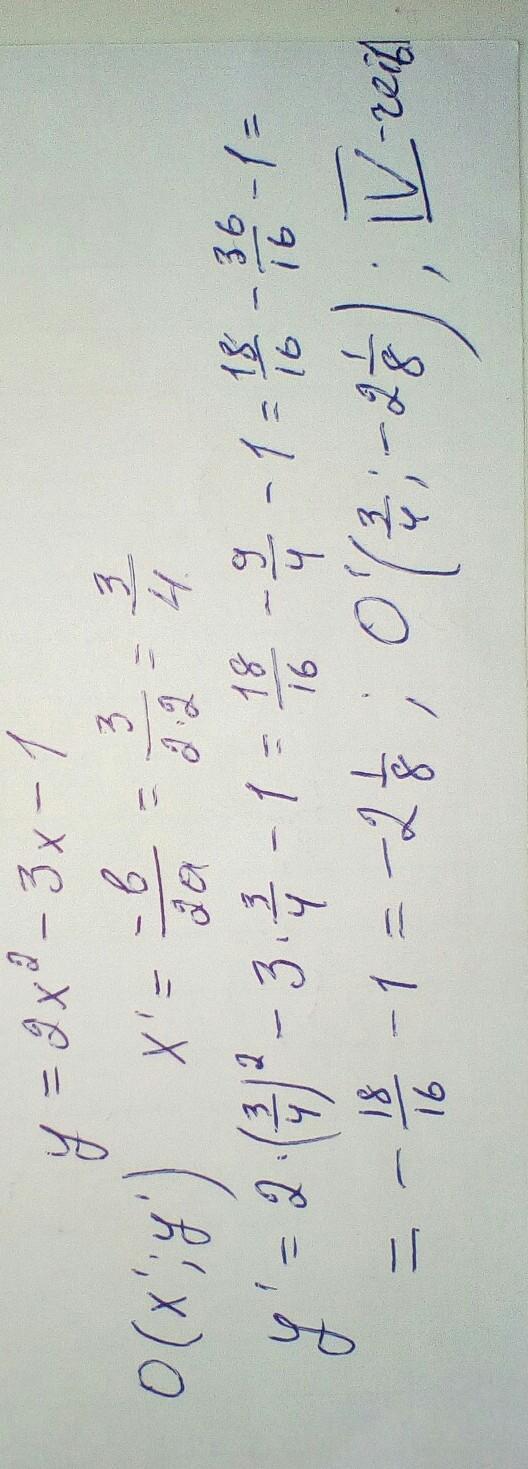 y = 2x² - 3x - 1
O(x'; y') x' = -b/2a = 3/2·2 = 3/4
y' = 2·(3/4)² - 3·3/4 - 1 = 18/16 - 9/4 - 1 = 18/16 - 36/16 - 1 =
= - 18/16 - 1 = -2 1/8; O'(3/4; -2 1/8); IV-